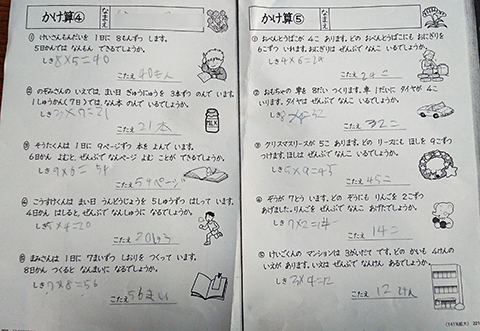 かけ算④
なまえ
① けいさんもんだいを 1日に 8もんずつ します。
5日かんでは なんもん できるでしょうか。
しき 8×5=40
こたえ 40もん
② のぞみさんの いえでは、まい日 ぎゅうにゅうを 3本ずつ のんで います。
1しゅうかん(7日)では、なん本 のんで いるでしょうか。
しき 3×7=21
こたえ 21本
③ そうたくんは 1日に 9ページずつ 本を よんで います。
6日かん よむと、ぜんぶで なんページ よむ ことが できるでしょうか。
しき 9×6=54
こたえ 54ページ
④ こうすけくんは まい日 うんどうじょうを 5しゅうずつ はしって います。
4日かん はしると、ぜんぶで なんしゅうに なるでしょうか。
しき 5×4=20
こたえ 20しゅう
⑤ まみさんは 1日に 7まいずつ しおりを つくって います。
8日かん つくると なんまいに なるでしょうか。
しき 7×8=56
こたえ 56まい
MILK
かけ算⑤
なまえ
① おべんとうばこが 4こ あります。どの おべんとうばこにも おにぎりを
6こずつ いれます。おにぎりは ぜんぶで なんこ いるでしょうか。
しき 4×6=24
こたえ 24こ
② おもちゃの 車を 8だい つくります。車 1だいに タイヤが 4こ
います。タイヤは ぜんぶで なんこ いるでしょうか。
しき 8×4=32
こたえ 32こ
③ クリスマスリースが 5こ あります。どの リースにも ほしを 9こずつ
つけます。ほしは ぜんぶで なんこ いるでしょうか。
しき 5×9=45
こたえ 45こ
④ ぞうが 7とう います。どの ぞうにも りんごを 2こずつ
あげました。りんごを ぜんぶで なんこ あげたでしょうか。
しき 7×2=14
こたえ 14こ
⑤ けいごくんの マンションは 3がいだて です。どの かいも 4けんの
いえが あります。いえは ぜんぶで なんけん あるでしょうか。
しき 3×4=12
こたえ 12けん
221